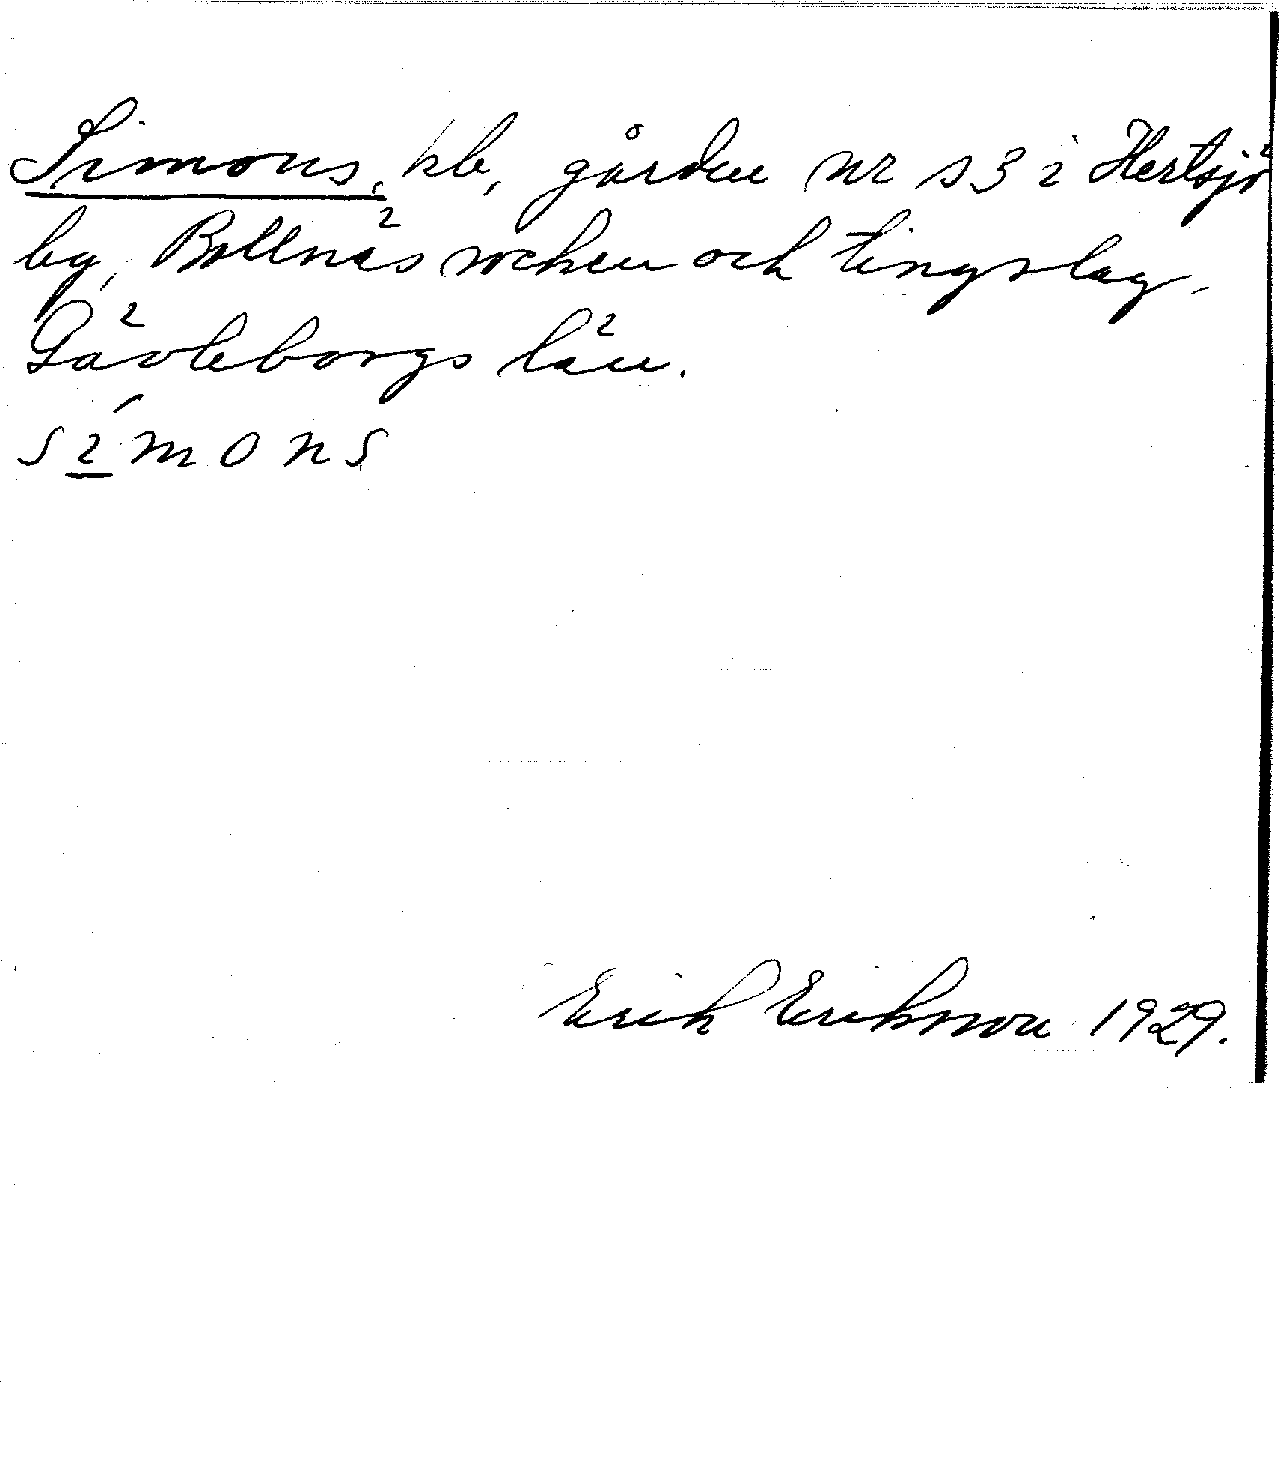 Simons, kb, gården nr 53 i Hertsjö
by, Bollnäs socken och tingslag,
Gävleborgs län.
símons
Erik Eriksson 1929.